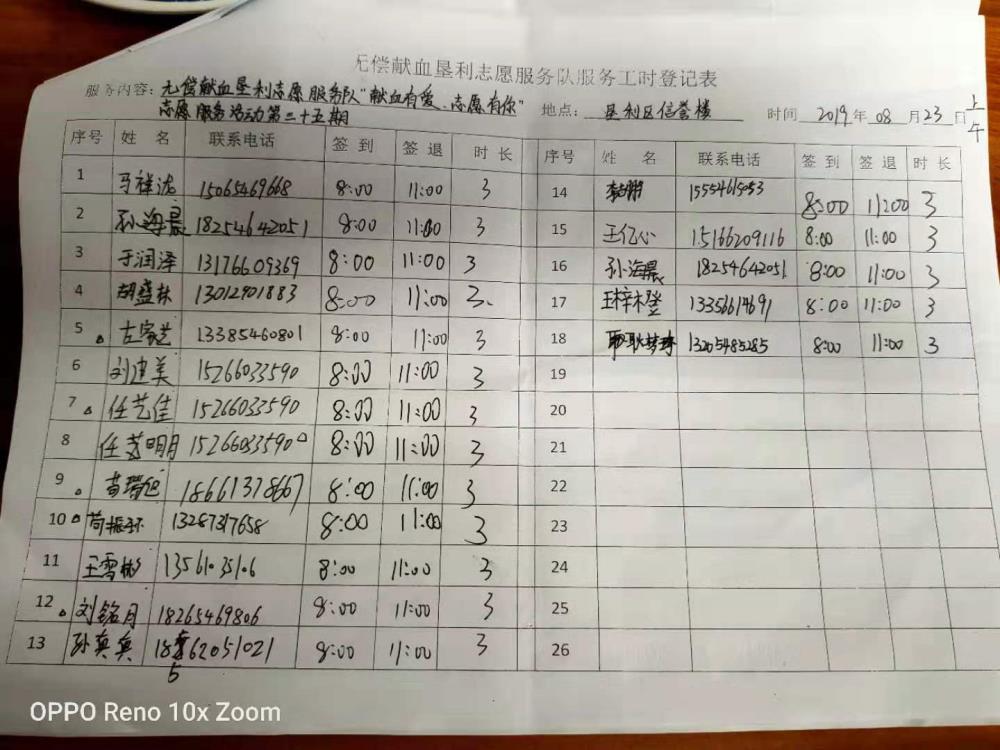 无偿献血垦利志愿服务队服务工时登记表
服务内容：无偿献血垦利志愿服务队"献血有爱、志愿有你"
志愿服务活动第三十五期
地点： 垦利区信誉楼 时间 2019年08月23日上午
序号 姓 名 联系电话 签 到 签 退 时 长
1 15065469668 8:00 11:00 3
2 孙海晨 18254642051 8:00 11:00 3
3 于润泽 13176609369 8:00 11:00 3
4 胡盛林 13012901883 8:00 11:00 3
5 左家艺 13385460801 8:00 11:00 3
6 刘建美 15266033590 8:00 11:00 3
7 任艺佳 15266033590 8:00 11:00 3
8 15266033590 8:00 11:00 3
9 18661378667 8:00 11:00 3
10 13287317658 8:00 11:00 3
11 王雪彬 8:00 11:00 3
12 刘铭月 18265469806 8:00 11:00 3
13 8:00 11:00 3
序号 姓 名 联系电话 签 到 签 退 时 长
14 8:00 11:00 3
15 王亿心 15166209116 8:00 11:00 3
16 孙海晨 18254642051 8:00 11:00 3
17 8:00 11:00 3
18 13205485285 8:00 11:00 3
19
20
21
22
23
24
25
26
OPPO Reno 10x Zoom